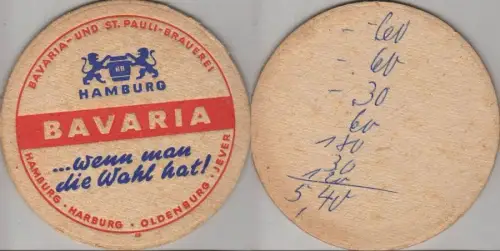 BAVARIA- UND ST. PAULI-BRAUEREI
HAMBURG
BAVARIA
...wenn man
die Wahl hat!
HAMBURG · HARBURG · OLDENBURG · JEVER
- -60
- . 60
- .30
60
1 80
30
5 40